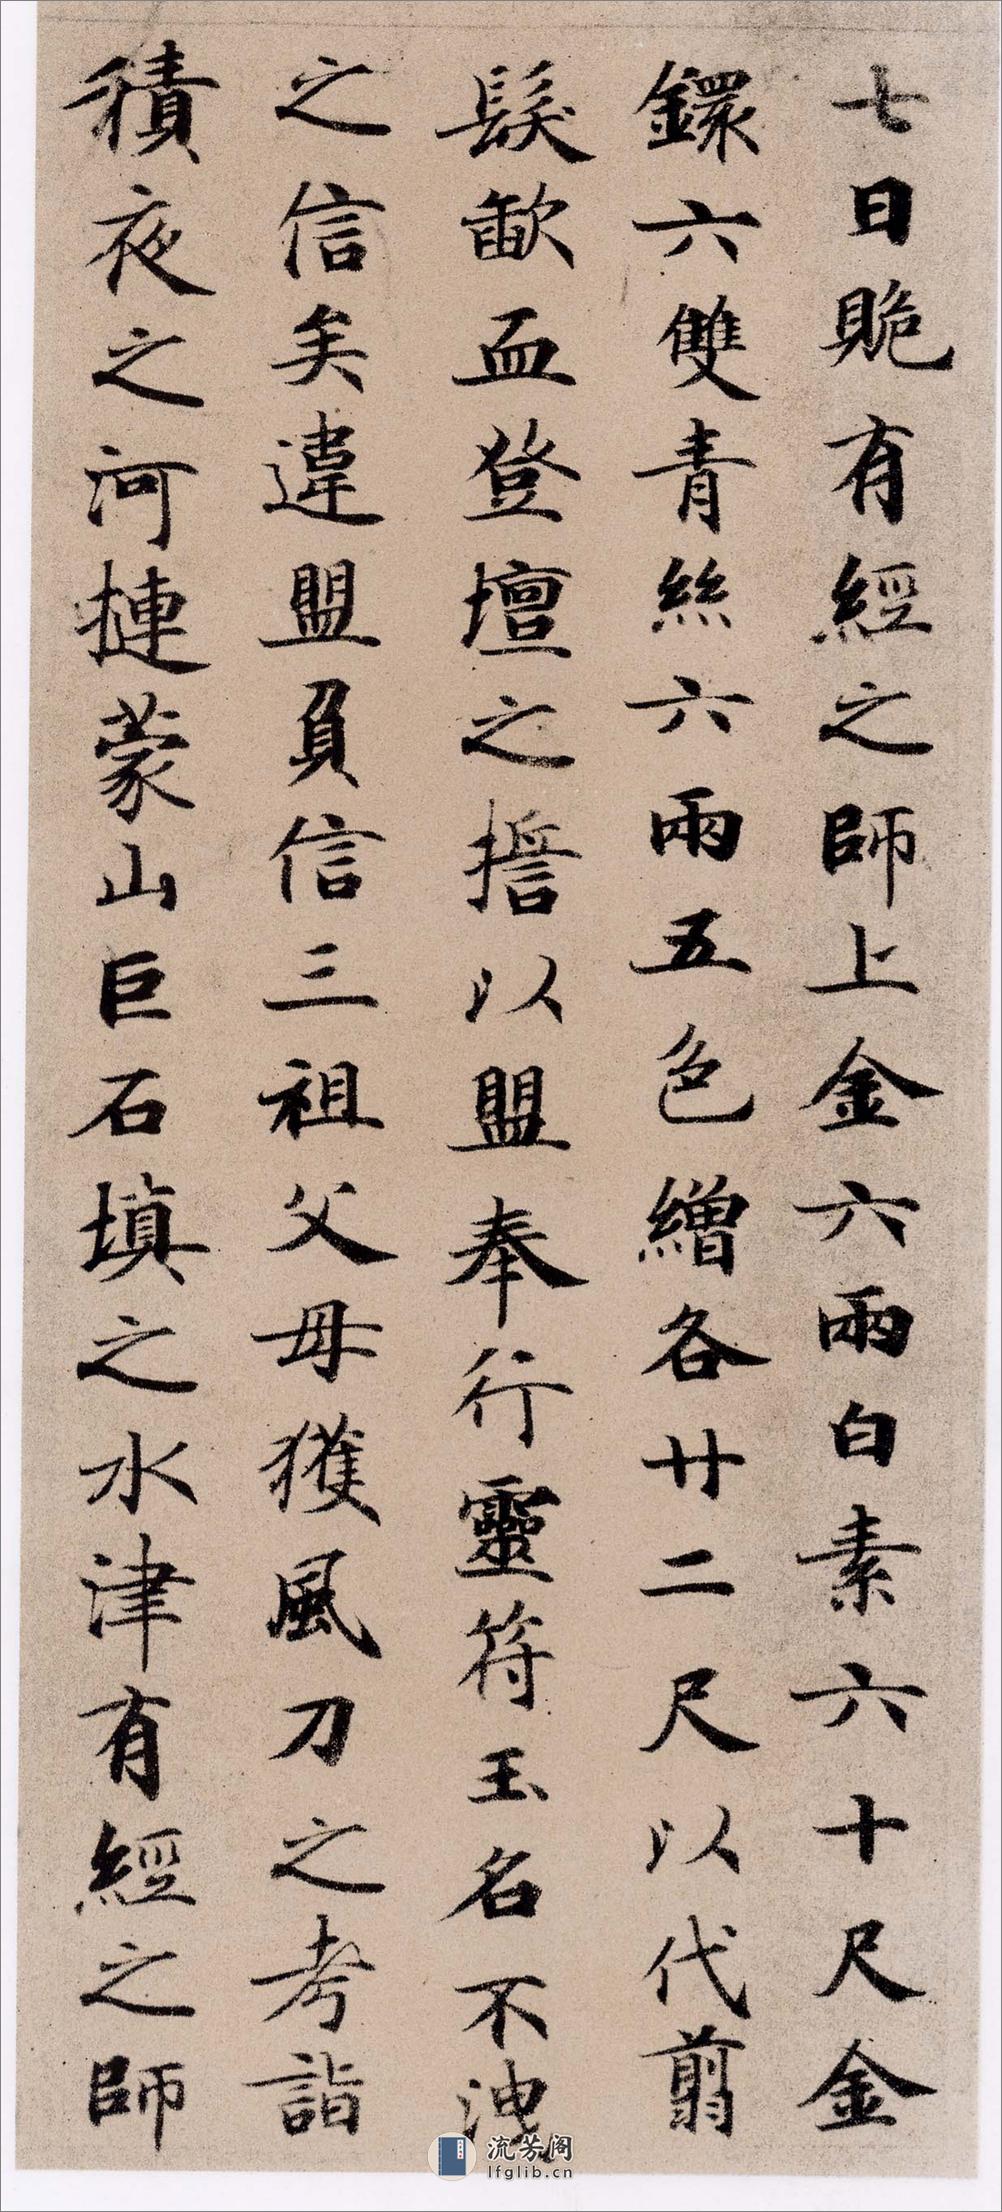 七日跪有經之師上金六兩白素六十尺金
鐶六雙青絲六兩五色繒各廿二尺以代剪
髮歃血登壇之擔以盟奉行靈符玉名不洩
之信矣違盟負信三祖父母獲風刀之考詣
積夜之河摙蒙山巨石填之水津有經之師
流芳阁
lfglib.cn